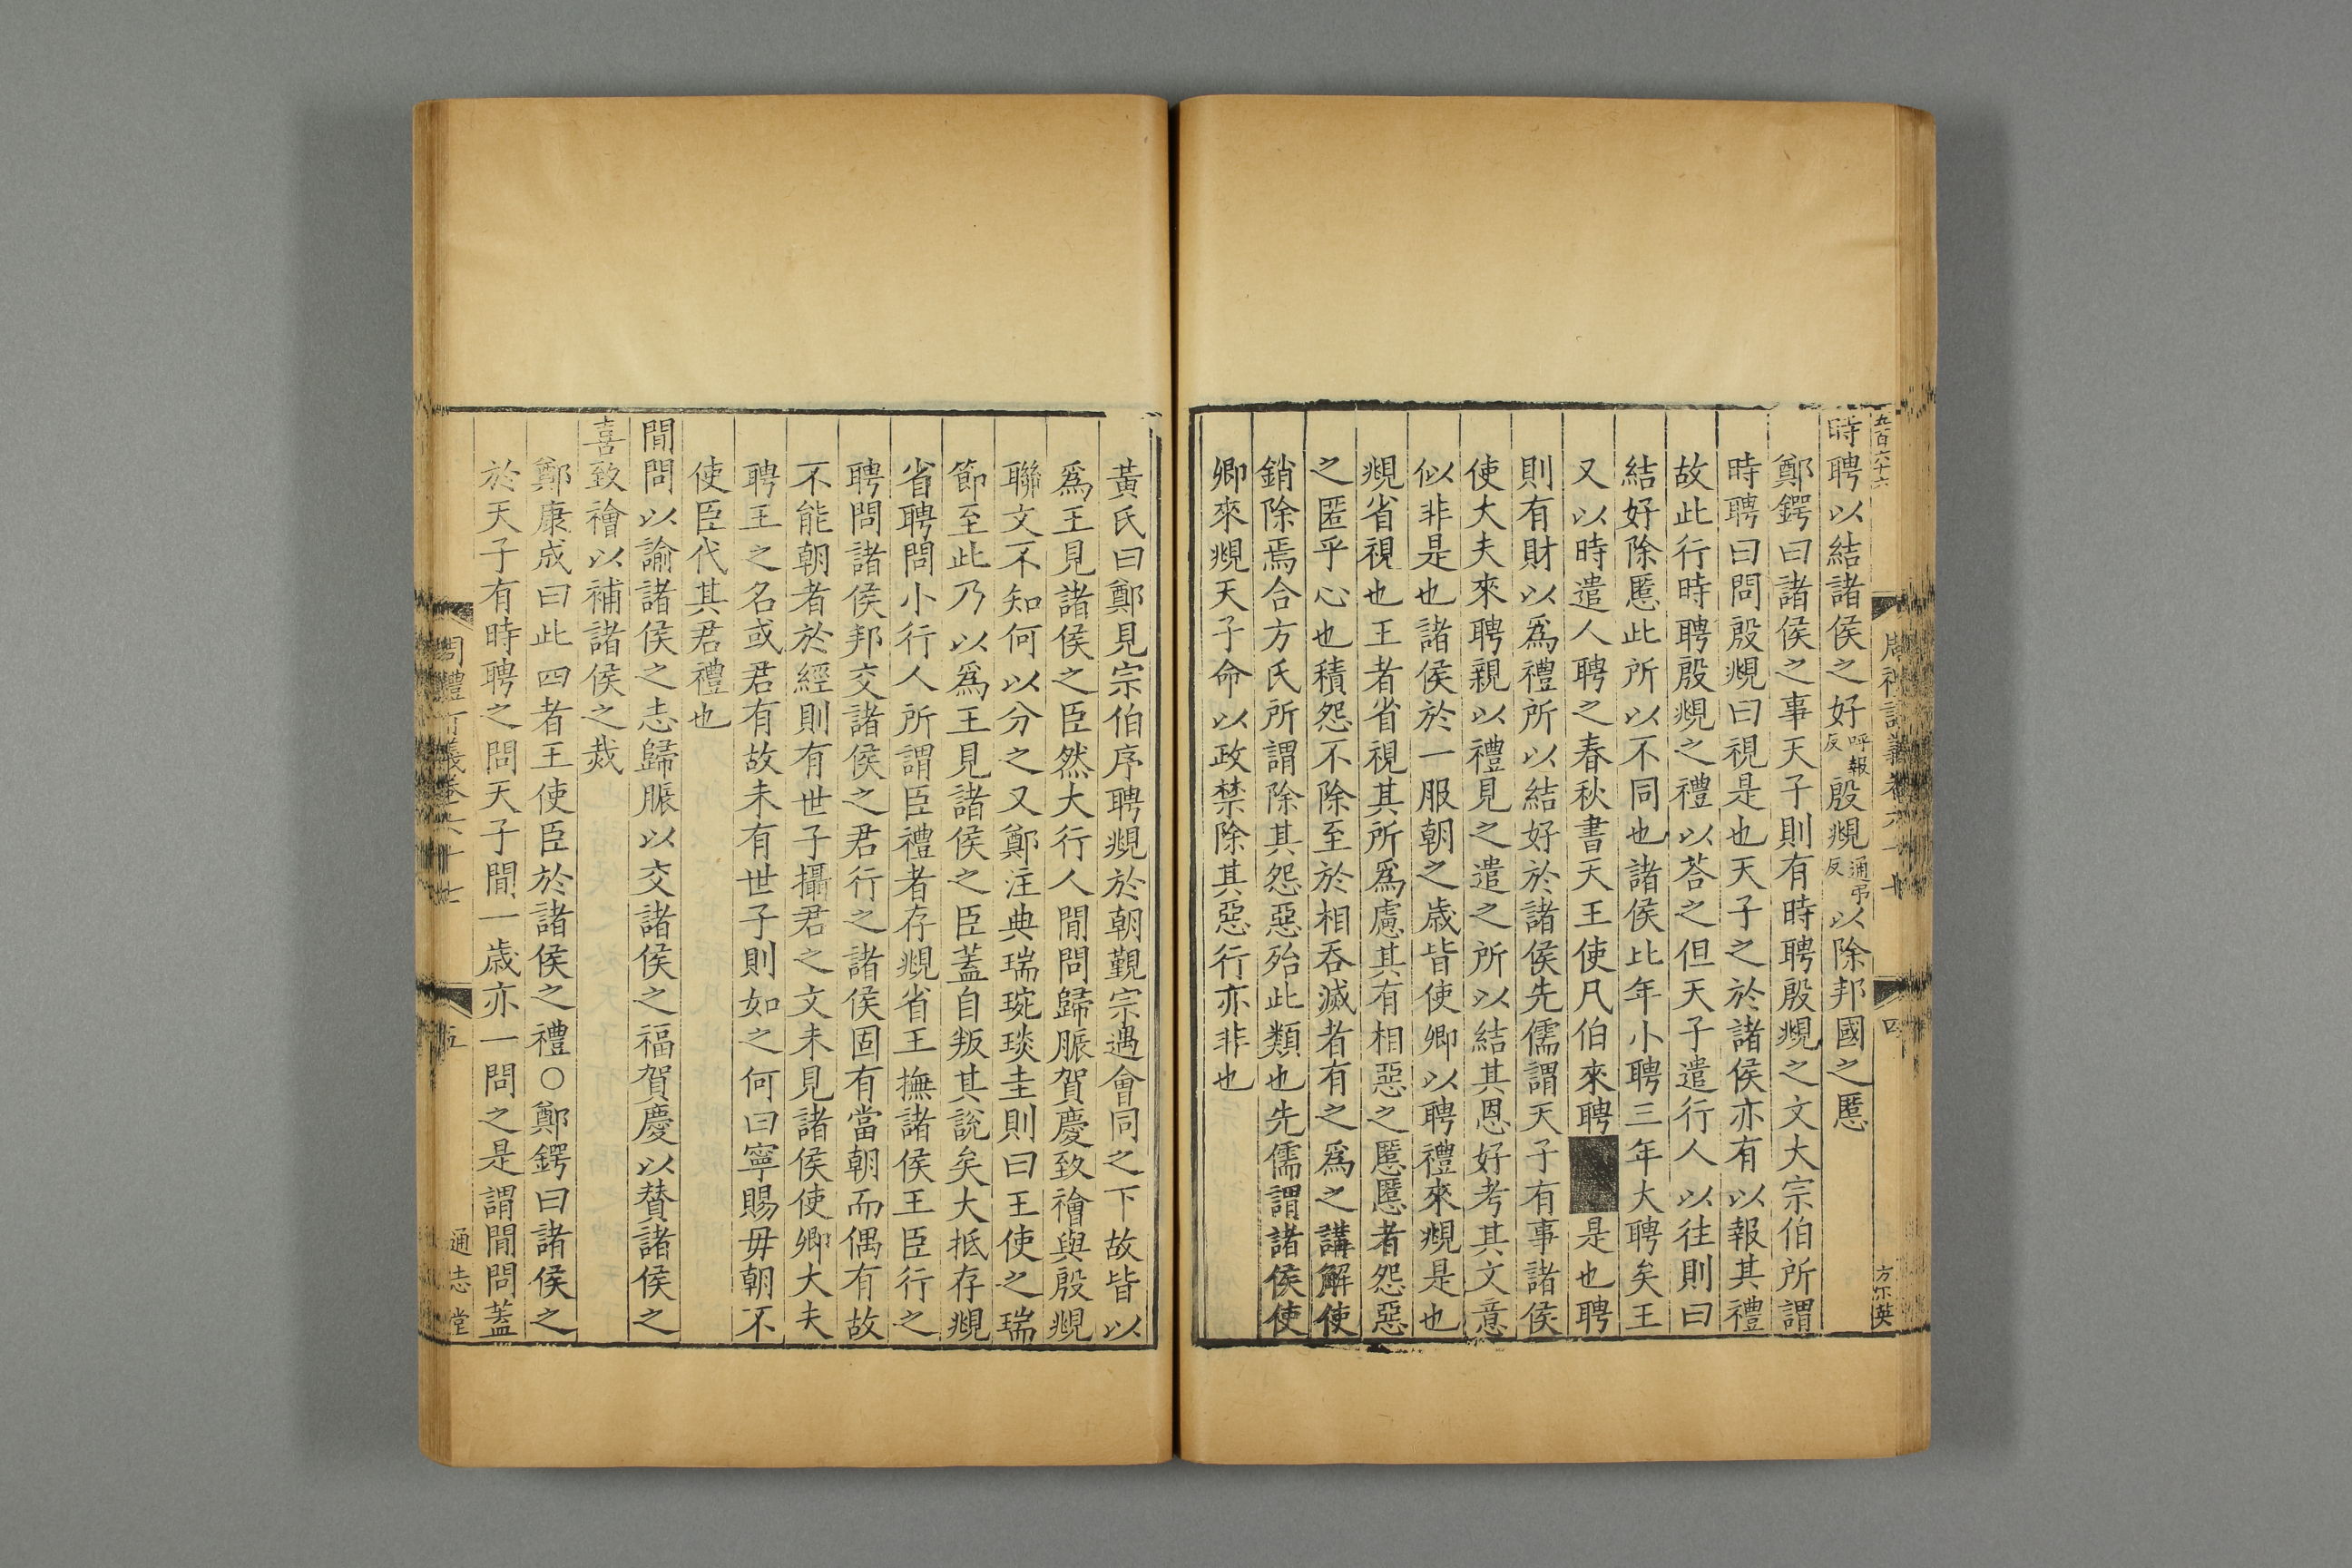 五百六十六
時聘以結諸侯之好呼報反殷覜通弔反以除邦國之慝
鄭鍔曰諸侯之事天子則有時聘殷覜之文大宗伯所謂
時聘曰問殷覜曰視是也天子之於諸侯亦有以報其禮
故此行時聘殷覜之禮以荅之但天子遣行人以往則曰
結好除慝此所以不同也諸侯比年小聘三年大聘矣王
又以時遣人聘之春秋書天王使凡伯來聘是也聘
則有財以爲禮所以結好於諸侯先儒謂天子有事諸侯
使大夫來聘親以禮見之遣之所以結其恩好考其文意
似非是也諸侯於一服朝之歲皆使卿以聘禮來覜是也
覜省視也王者省視其所爲慮其有相惡之慝慝者怨惡
之匿乎心也積怨不除至於相吞滅者有之爲之講解使
銷除焉合方氏所謂除其怨惡殆此類也先儒謂諸侯使
卿來覜天子命以政禁除其惡行亦非也
四
黃氏曰鄭見宗伯序聘覜於朝覲宗遇會同之下故皆以
爲王見諸侯之臣然大行人閒問歸脤賀慶致禬與殷覜
聯文不知何以分之又鄭注典瑞琬琰圭則曰王使之瑞
節至此乃以爲王見諸侯之臣蓋自叛其說矣大抵存覜
省聘問小行人所謂臣禮者存覜省王撫諸侯王臣行之
聘問諸侯邦交諸侯之君行之諸侯固有當朝而偶有故
不能朝者於經則有世子攝君之文未見諸侯使卿大夫
聘王之名或君有故未有世子則如之何曰寧賜毋朝不
使臣代其君禮也
閒問以諭諸侯之志歸脤以交諸侯之福賀慶以贊諸侯之
喜致禬以補諸侯之烖
鄭康成曰此四者王使臣於諸侯之禮○鄭鍔曰諸侯之
於天子有時聘之問天子閒一歲亦一問之是謂閒問蓋
周禮訂義卷六十七 五 通志堂